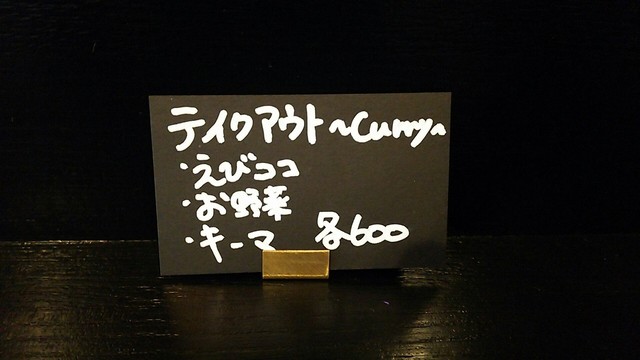 テイクアウト~Curry~
・えびココ
・お野菜
・キーマ 各600